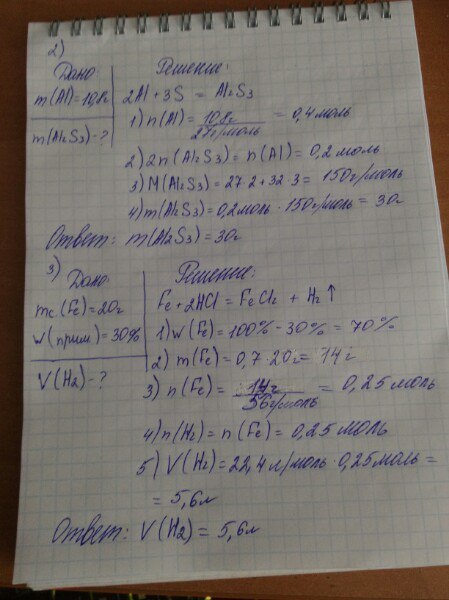 2)
Дано:
m(Al)=10,8г
m(Al₂S₃)-?
Решение:
2Al+3S = Al₂S₃
1) n(Al) = 10,8г / 27г/моль = 0,4моль
2) 2n(Al₂S₃) = n(Al) = 0,2моль
3) M(Al₂S₃) = 27·2+32·3 = 150г/моль
4) m(Al₂S₃) = 0,2моль · 150г/моль = 30г
Ответ: m(Al₂S₃) = 30г
3)
Дано:
mс.(Fe) = 20г
w(прим) = 30%
V(H₂)-?
Решение:
Fe+2HCl = FeCl₂ + H₂↑
1) w(Fe) = 100% - 30% = 70%
2) m(Fe) = 0,7·20г = 14г
3) n(Fe) = 14г / 56г/моль = 0,25моль
4) n(H₂) = n(Fe) = 0,25моль
5) V(H₂) = 22,4л/моль · 0,25моль =
= 5,6л
Ответ: V(H₂) = 5,6л